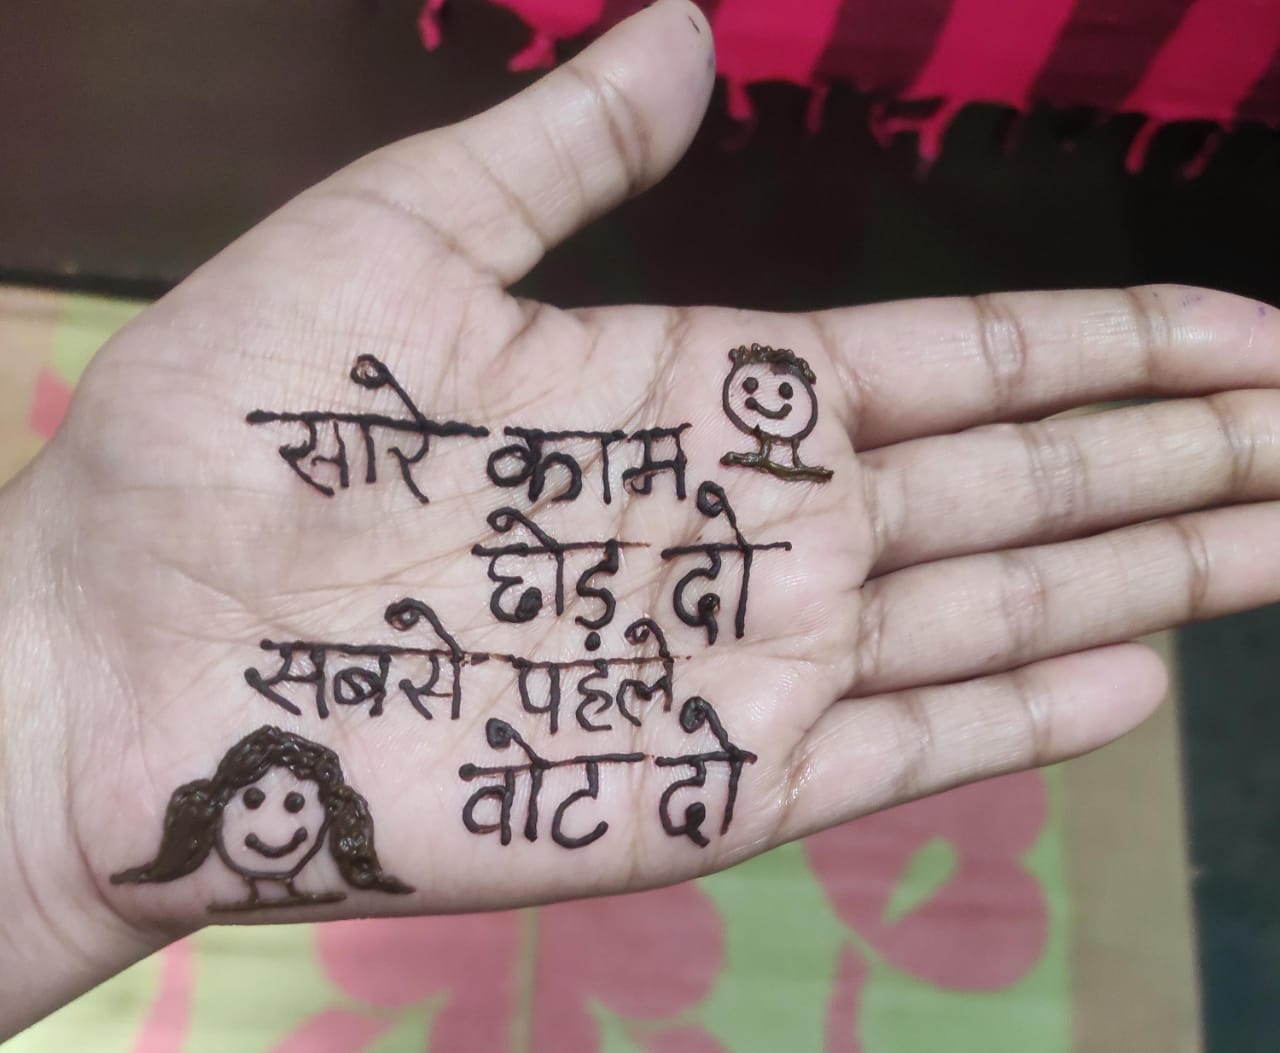 सारे काम
छोड़ दो
सबसे पहले
वोट दो